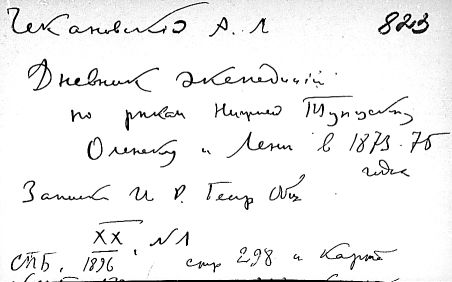 Чекановскій А. Л 823
Дневник экспедиціи
по рекам Нижней Тунуске
Оленеку и Лени в 1873-75
годах
Записки И Р. Геогр Общ
XX, № 1
СПБ. 1896 стр 298 и Карта